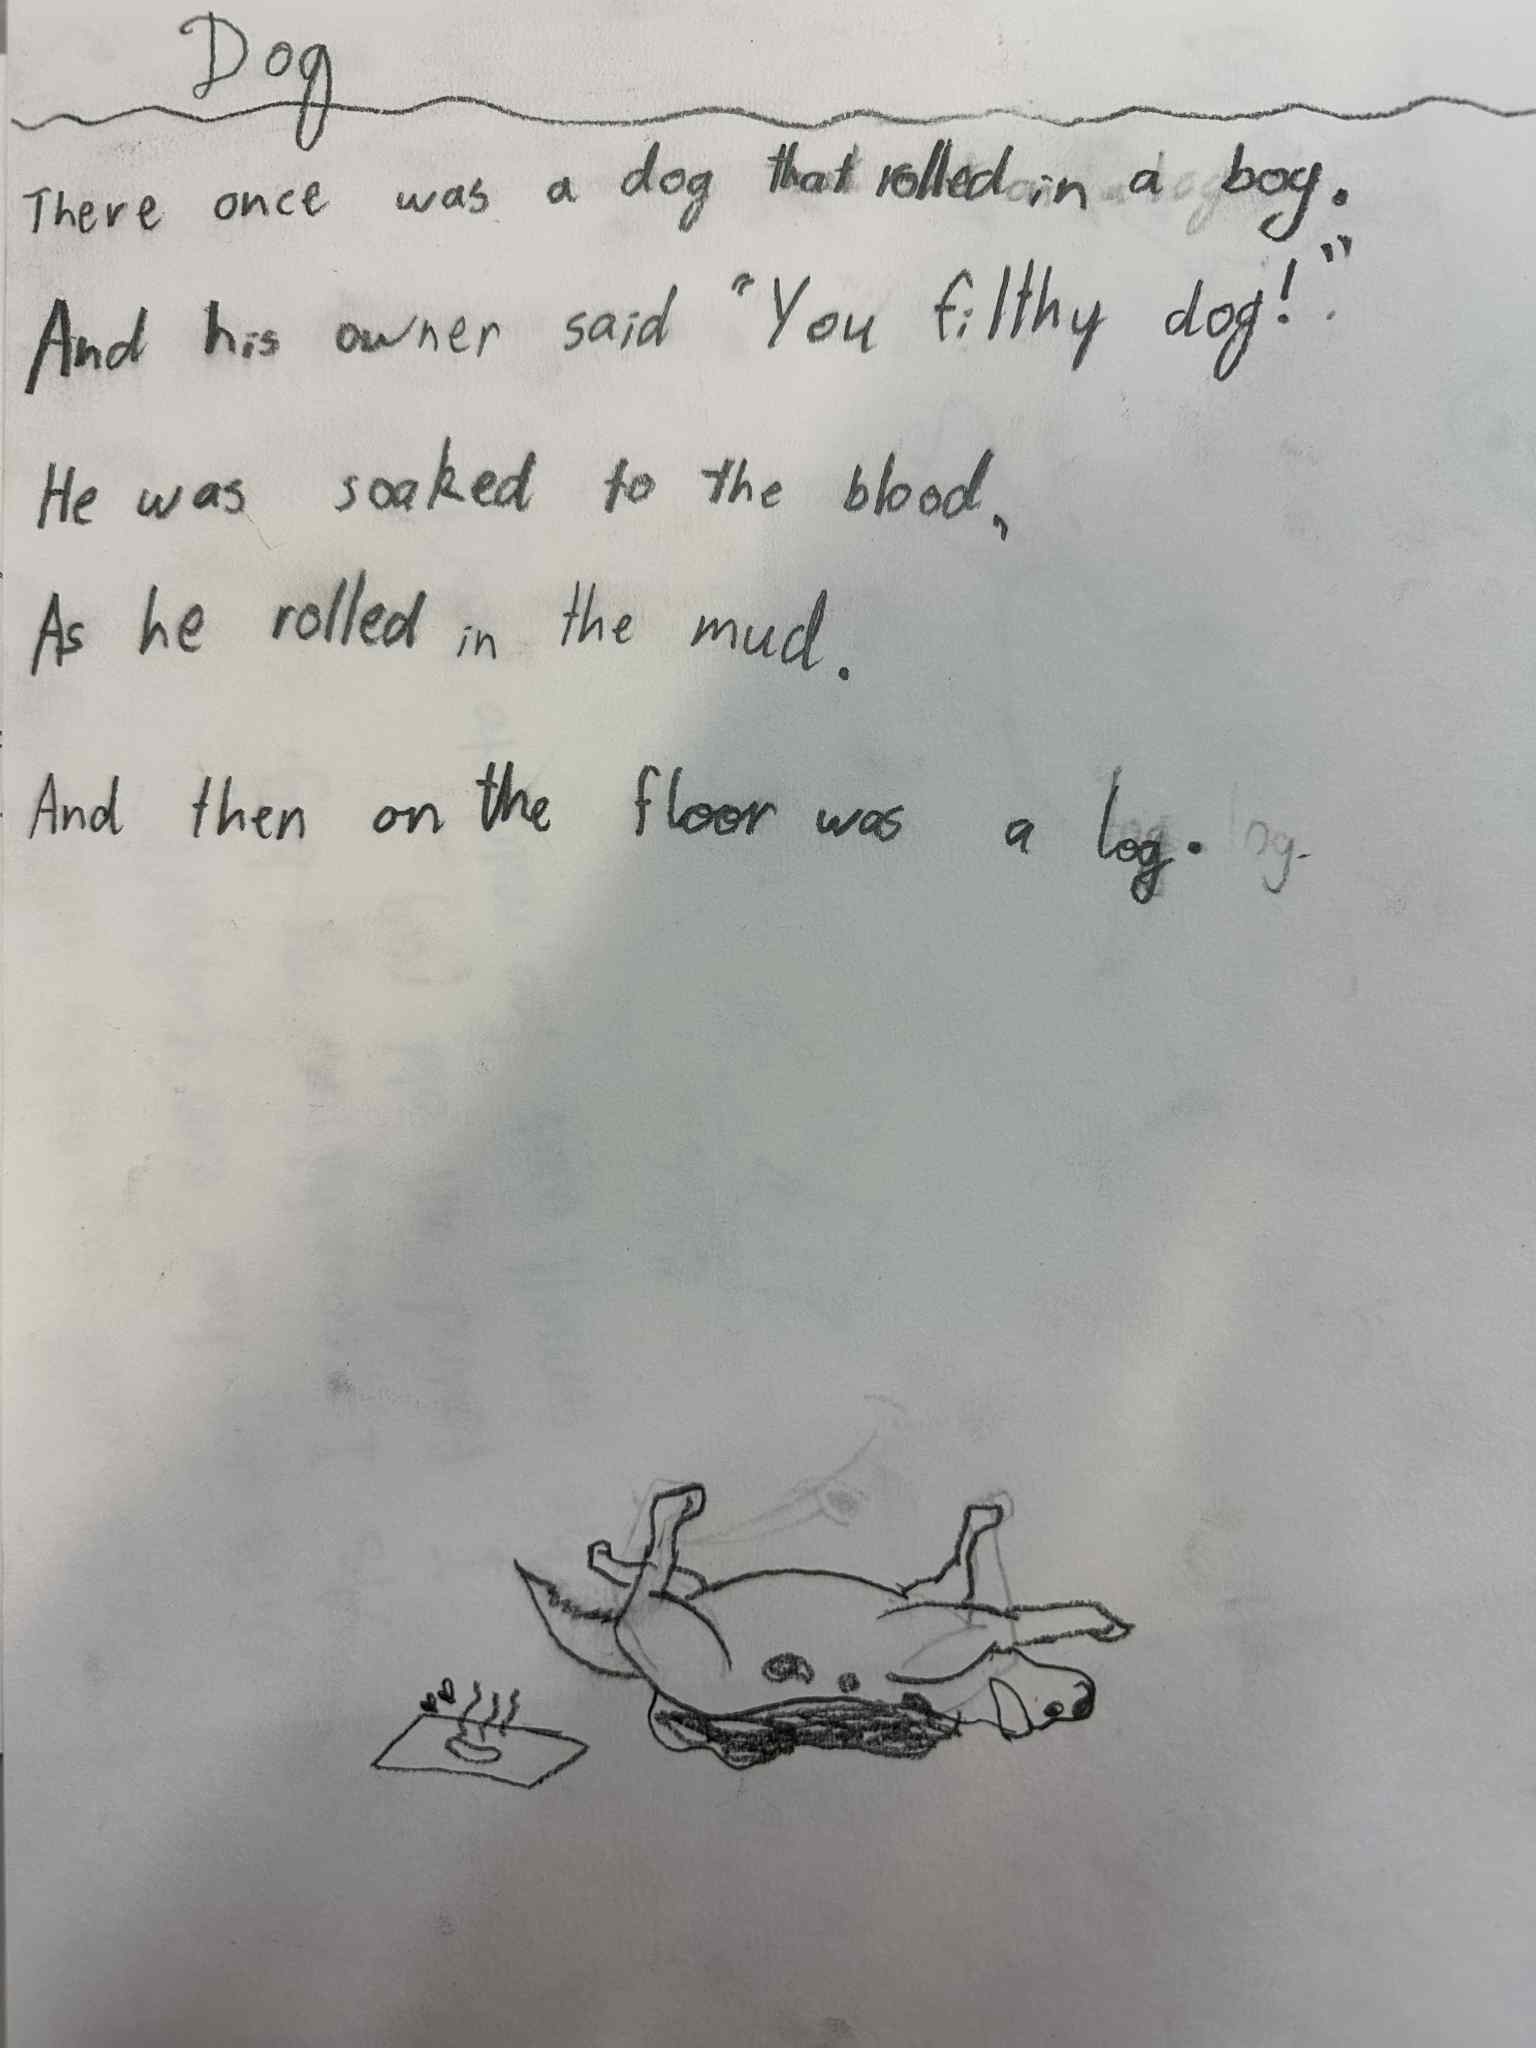 Dog
There once was a dog that rolled in a bog.
And his owner said "You filthy dog!".
He was soaked to the blood,
As he rolled in the mud.
And then on the floor was a log.